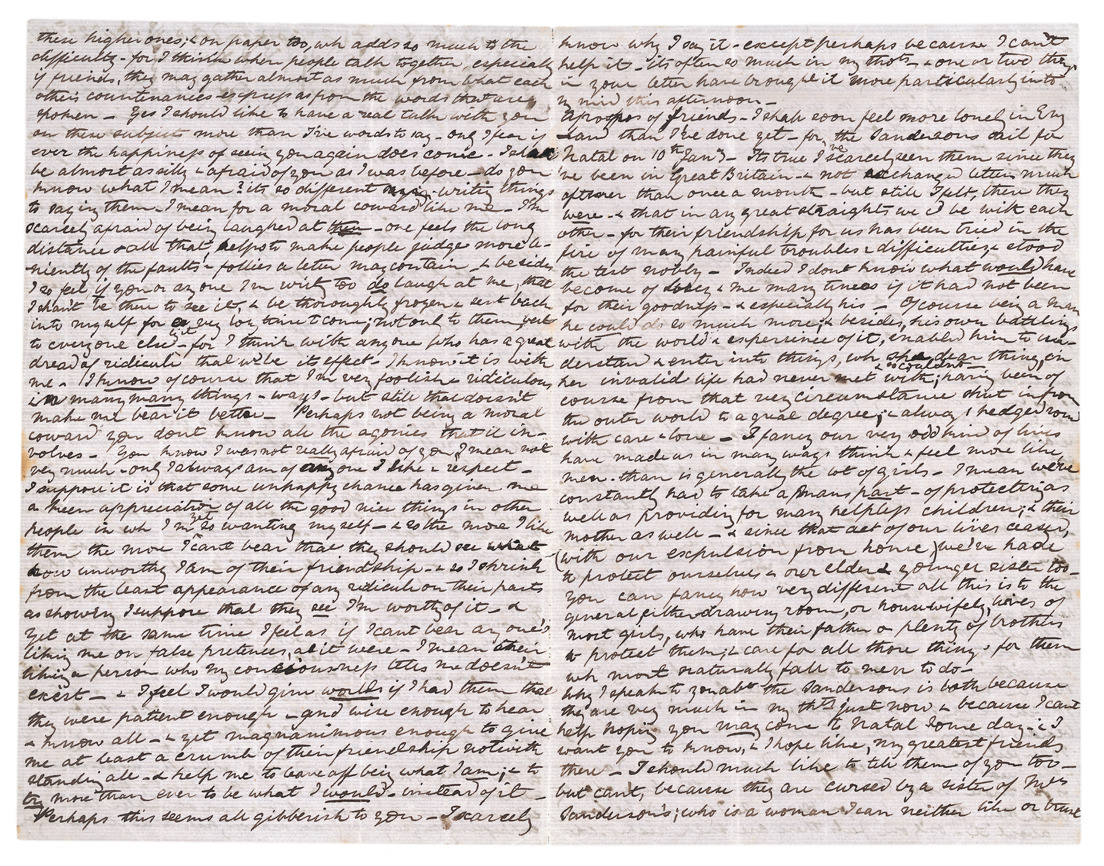 these higher ones; & on paper too, wh adds so much to the
difficulty - for I think when people talk together, especially
if friends, they may gather almost as much from what each
others countenances express as from the words that are
spoken - Yes I should like to have a real talk with you
on these subject more than I've words to say - only I fear if
ever the happiness of seeing you again does come - I shall
be almost as silly & afraid of you as I was before - do you
know what I mean? its so different writing things
to saying them - I mean for a moral coward like me - I'm
scarcely afraid of being laughed at - one feels the long
distance & all that, helps to make people judge more le-
niently of the faults & follies a letter may contain - & besides
I so feel if you or any one I'm writ too do laugh at me, that
I shan't be there to see it, & be thoroughly frozen & sent back
into myself for a very long time to come; not only to them, but
to everyone else - for I think with anyone who has a great
dread of ridicule that w'd be its effect, I know it is with
me - I know of course that I'm very foolish & ridiculous
in many many things - ways - but still that doesn't
make me bear it better - Perhaps not being a moral
coward you dont know all the agonies that it in-
volves - You know I was not really afraid of you, I mean not
very much - only I always am of any one I like & respect -
I suppose it is that some unhappy chance has given me
a keen appreciation of all the good nice things in other
people in wh I m so wanting myself - & so the more I like
them the more I cant bear that they should see what
how unworthy I am of their friendship - & so I shrink
from the least appearance of any ridicule on their parts
as showing I suppose that they see I'm worthy of it - &
yet at the same time I feel as if I cant bear any one's
liking me on false pretences, as it were - I mean their
liking a person who my consciousness tells me doesn't
exist - & I feel I would give worlds if I had them that
they were patient enough - and wise enough to hear
& know all - & yet magnanimous enough to give
me at least a crumb of their friendship notwith
standing all - & help me to leave off being what I am; & to
try more than ever to be what I would - instead of it -
Perhaps this seems all gibberish to you - I scarcely
know why I say it - except perhaps because I can't
help it - its often so much in my thots - & one or two things
in your letter have brought it more particularly into
my mind this afternoon -
Apropos of friends - I shall soon feel more lonely in Eng
land than I've done yet - for the Sandersons sail for
Natal on 10th Jany - Its true I've scarcely seen them since they
've been in Great Britain - & not exchanged letters much
oftener than once a month - but still I felt, there they
were - & that in any great straights we'd be with each
other - for their friendship for us has been tried in the
fire of many painful troubles & difficulties, & stood
the test nobly - Indeed I dont know what would have
become of & me many times if it had not been
for their goodness - & especially his - Of course being a man
he could do so much more; & besides, his own battlings
with the world & experience of it, enabled him to un-
derstand & enter into things, wh she, dear thing, in
& so couldn't -
her invalid life had never met with; having been of
course from that very circumstance shut in from
the outer world to a great degree; & always hedged round
with care & love - I fancy our very odd kind of lives
have made us in many ways think & feel more like
men - than is generally the lot of girls - I mean we've
constantly had to take a mans part - of protecting as
well as providing for many helpless children; & their
mother as well - & since that act of our lives ceased,
(with our expulsion from home) we've had
to protect ourselves & our elder & younger sister too -
You can fancy how very different all this is to the
general either drawing room, or housewifely, lives of
most girls, who have their father & plenty of brothers
to protect them, & care for all those things for them
wh most naturally fall to men to do -
Why I speak to you abt the Sandersons is both because
they are very much in my thts just now & because I cant
help hoping you may come to Natal some day: & I
want you to know, & I hope like, my greatest friends
there - I should much like to tell them of you too -
but cant, because they are cursed by a sister of Mrs
Sandersons; who is a woman I can neither like or trust